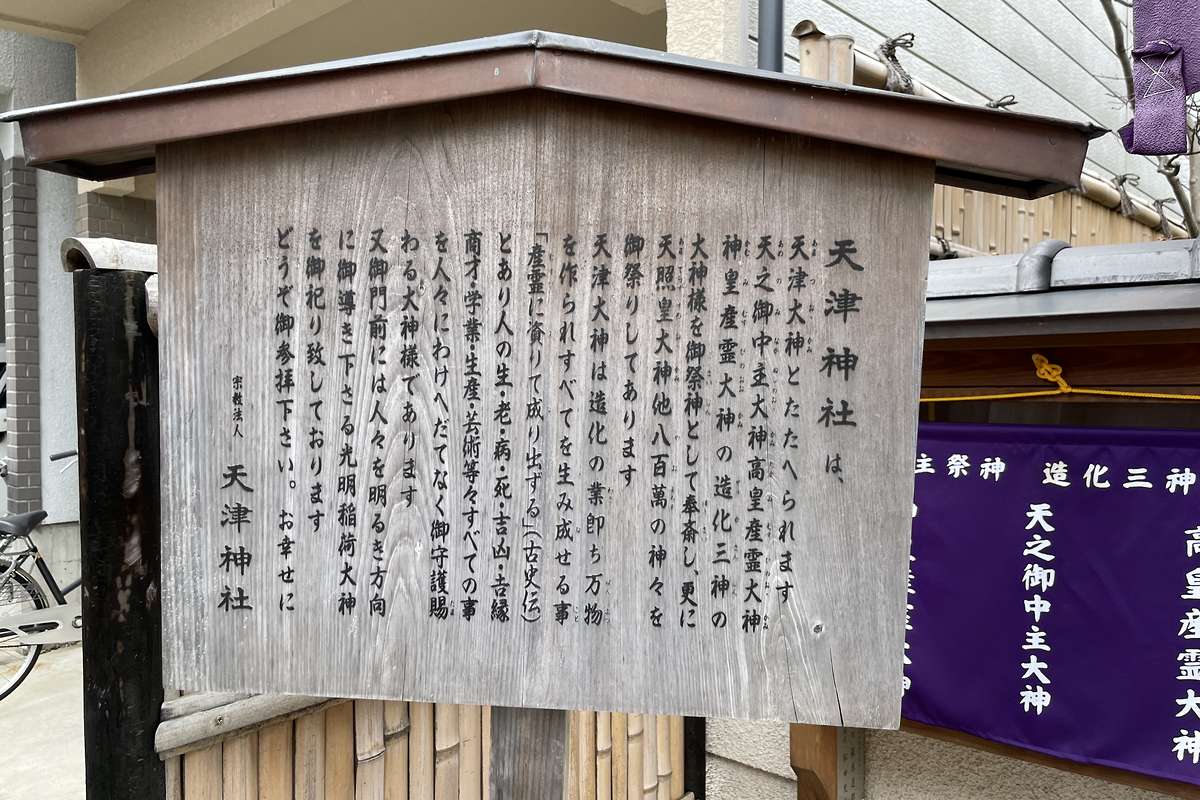 天津神社は、
天津大神とたたへられます
天之御中主大神高皇産霊大神
神皇産霊大神の造化三神の
大神様を御祭神として奉斎し、更に
天照皇大神他八百萬の神々を
御祭りしてあります
天津大神は造化の業卽ち万物
を作られすべてを生み成せる事
「産霊に資りて成り出ずる」(古史伝)
とあり人の生・老・病・死・吉凶・吉縁
商才・学業・生産・芸術等々すべての事
を人々にわけへだてなく御守護賜
わる大神様であります
又御門前には人々を明るき方向
に御導き下さる光明稲荷大神
を御祀り致しております
どうぞ御参拝下さい。お幸せに
宗教法人 天津神社
造化三神
主祭神
高皇産霊大神
天之御中主大神